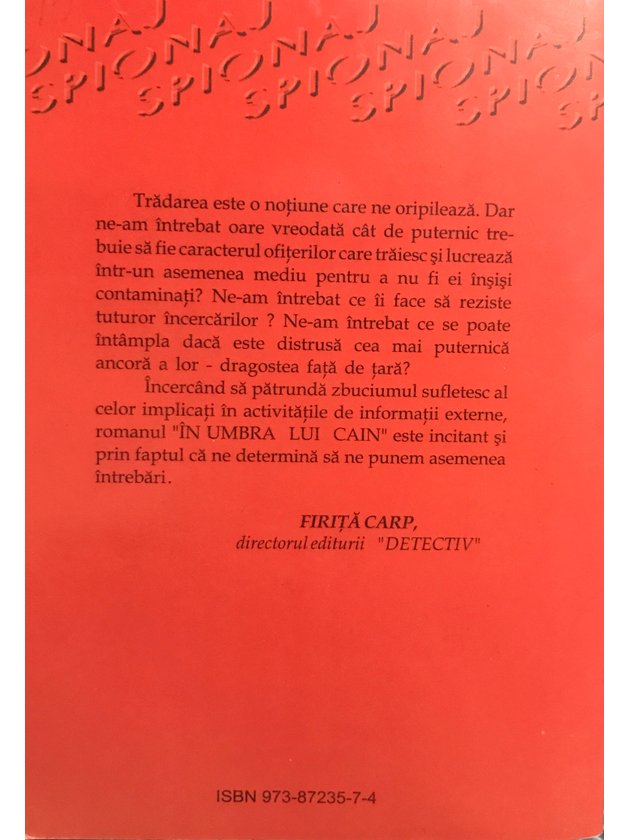 ONAJ SPIONAJ SPIONAJ SPIONAJ
SPIONAJ SPIONAJ SPIONAJ
Trădarea este o noțiune care ne oripilează. Dar
ne-am întrebat oare vreodată cât de puternic tre-
buie să fie caracterul ofițerilor care trăiesc și lucrează
într-un asemenea mediu pentru a nu fi ei înșiși
contaminați? Ne-am întrebat ce îi face să reziste
tuturor încercărilor ? Ne-am întrebat ce se poate
întâmpla dacă este distrusă cea mai puternică
ancoră a lor - dragostea față de țară?
Încercând să pătrundă zbuciumul sufletesc al
celor implicați în activitățile de informații externe,
romanul "ÎN UMBRA LUI CAIN" este incitant și
prin faptul că ne determină să ne punem asemenea
întrebări.
FIRIȚĂ CARP,
directorul editurii "DETECTIV"
ISBN 973-87235-7-4